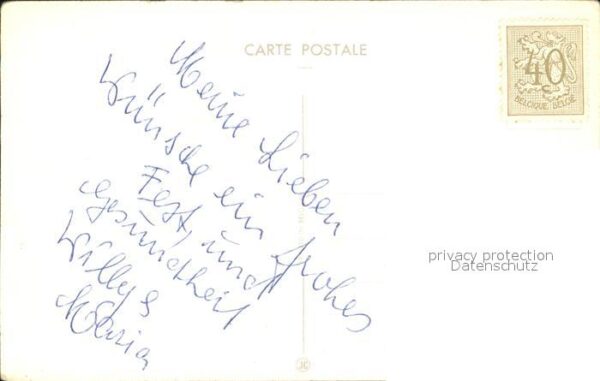 CARTE POSTALE
40
C
BELGIQUE-BELGIE
Meine Lieben
Wünsche ein frohes
Fest, und
gesundheit
Willy &
Maria
privacy protection
Datenschutz
JC